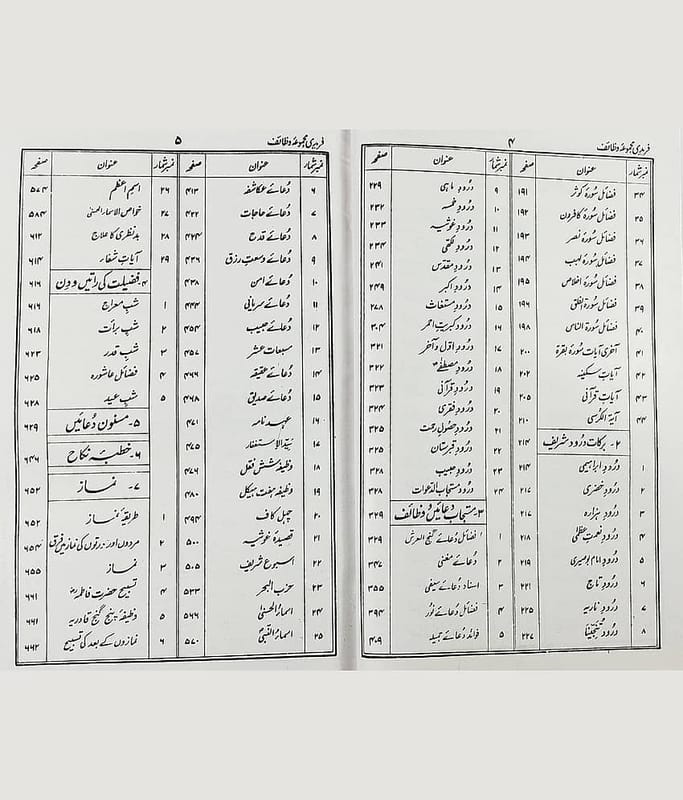 فریدی مجموعۂ وظائف
۴
نمبر شمار عنوان صفحہ
۳۴ فضائل سورۂ کوثر ۱۹۱
۳۵ فضائل سورۂ کافرون ۱۹۲
۳۶ فضائل سورۂ نصر ۱۹۳
۳۷ فضائل سورۂ لہب ۱۹۴
۳۸ فضائل سورۂ اخلاص ۱۹۵
۳۹ فضائل سورۂ الفلق ۱۹۶
۴۰ فضائل سورۂ الناس ۱۹۸
۴۱ آخری آیات سورۂ بقرۃ ۲۰۰
۴۲ آیاتِ سکینہ ۲۰۲
۴۳ آیاتِ قرآنی ۲۰۵
۴۴ آیۃ الکرسی ۲۱۰
۲۔ برکات درود شریف ۲۱۴
۱ درودِ ابراہیمی ۲۱۴
۲ درودِ خضری ۲۱۷
۳ درودِ ہزارہ ۲۱۷
۴ درودِ نعمتِ عظمٰی ۲۱۸
۵ درودِ امام بوصیری ۲۱۹
۶ درودِ تاج ۲۲۱
۷ درودِ ناریہ ۲۲۵
۸ درودِ تنجّینا ۲۲۷
نمبر شمار عنوان صفحہ
۹ درودِ ماہی ۲۲۹
۱۰ درودِ خمسہ ۲۳۲
۱۱ درودِ غوثیہ ۲۳۳
۱۲ درودِ لکھی ۲۳۴
۱۳ درودِ مقدّس ۲۴۱
۱۴ درودِ اکبر ۲۴۹
۱۵ درودِ مستغاث ۲۷۸
۱۶ درودِ کبریتِ احمر ۳۰۴
۱۷ درودِ اوّل و آخر ۳۲۱
۱۸ درودِ مصطفےٰ ۳۲۲
۱۹ درودِ قرآنی ۳۲۳
۲۰ درودِ فقری ۳۲۴
۲۱ درودِ حصولِ رحمت ۳۲۵
۲۲ درودِ قبرستان ۳۲۵
۲۳ درودِ حبیب ۳۲۸
۲۴ درودِ مستجاب الدعوات ۳۲۸
۳۔ مستجاب دعائیں و وظائف ۳۲۹
۱ فضائل دعائے گنج العرش ۳۲۹
۲ دُعائے مغنی ۳۴۷
۳ اسناد دعائے سیفی ۳۵۵
۴ فضائل دعائے نور ۳۹۴
۵ فوائد دعائے جمیلہ ۴۰۹
فریدی مجموعۂ وظائف
۵
نمبر شمار عنوان صفحہ
۶ دُعائے عکاشفہ ۴۱۳
۷ دُعائے حاجات ۴۲۲
۸ دُعائے قدح ۴۲۴
۹ دُعائے وسعتِ رزق ۴۳۶
۱۰ دُعائے امن ۴۳۸
۱۱ دُعائے سریانی ۴۴۴
۱۲ دُعائے حبیب ۴۵۴
۱۳ مسبعات عشر ۴۵۷
۱۴ دُعائے عقیقہ ۴۶۶
۱۵ دُعائے صدیق ۴۶۸
۱۶ عہد نامہ ۴۷۱
۱۷ سیّد الاستغفار ۴۷۵
۱۸ وظیفۂ شش قفل ۴۷۶
۱۹ وظیفہ ہفت ہیکل ۴۸۰
۲۰ چہل کاف ۴۹۴
۲۱ قصیدۂ غوثیہ ۵۰۰
۲۲ اسبوع شریف ۵۰۵
۲۳ حزب البحر ۵۳۳
۲۴ اسماء الحسنیٰ ۵۶۶
۲۵ اسماء النبیؐ ۵۷۰
نمبر شمار عنوان صفحہ
۲۶ اسمِ اعظم ۵۷۴
۲۷ خواص الاسماء الحسنیٰ ۵۸۴
۲۸ بدنظری کا علاج ۶۱۲
۲۹ آیاتِ شفاء ۶۱۴
۴۔ فضیلت کی راتیں و دن ۶۱۶
۱ شبِ معراج ۶۱۶
۲ شبِ برأت ۶۱۸
۳ شبِ قدر ۶۲۳
۴ فضائل عاشورہ ۶۲۵
۵ شبِ عید ۶۲۸
۵۔ مسنون دُعائیں ۶۲۹
۶۔ خطبۂ نکاح ۶۴۶
۷۔ نماز ۶۵۲
۱ طریقۂ نماز ۶۵۲
۲ مردوں اور عورتوں کی نماز میں فرق ۶۵۴
۳ نماز ۶۵۵
۴ تسبیح حضرت فاطمہؓ ۶۶۱
۵ وظیفۂ پنج گنج قادریہ ۶۶۱
۶ نمازوں کے بعد کی تسبیح ۶۶۲